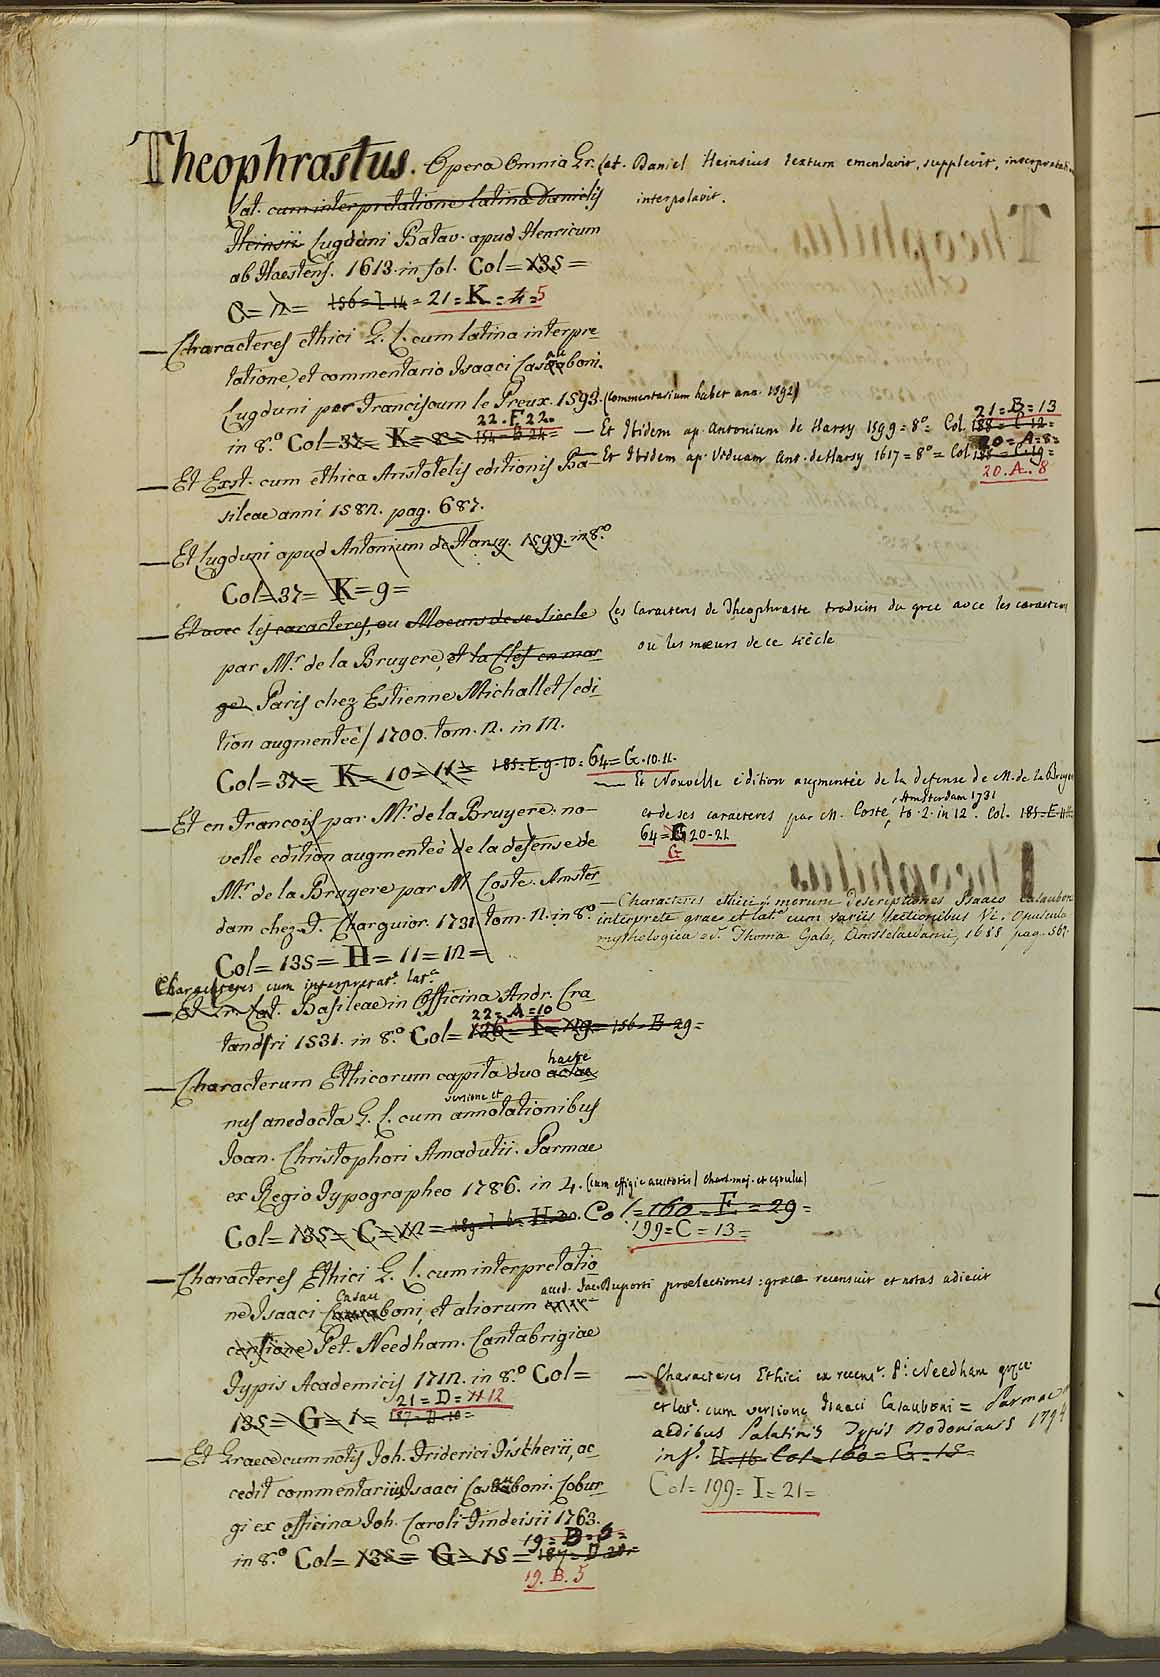 Theophrastus. Opera Omnia Gr. Lat. Daniel Heinsius textum emendavit, supplevit, interpretati
Lat. cum interpretatione latina Danielis interpolavit.
Heinsii Lugduni Batav. apud Henricum
ab Haestens. 1613. in fol. Col = 135 =
C = 12 = 21 = K = 4 = 5
— Characteres ethici G. L. cum latina interpre-
tatione, et commentario Isaaci Casauboni.
Lugduni per Franciscum le Preux. 1593. (commentarium habet ann. 1592)
22. F. 22.
in 8.° Col = 37 = K = 8 = 154 = B-24 =
21 = B = 13
— Et Ibidem ap. Antonium de Harsy 1599 = 8° = Col. 188 = C-12 =
20 = A = 8 =
— Et Ibidem ap. Viduam Ant. de Harsy 1617 = 8° = Col
20. A. 8
— Et Exst. cum ethica Aristotelis editionis Ba-
sileae anni 1582. pag. 687.
— Et Lugduni apud Antonium de Harsy. 1599. in 8.°
Col = 37 = K = 9 =
— Et avec les caracteres, ou Moeurs de se siecle Les Caracteres de Theophraste traduits du grec avec les caracteres
ou les mœurs de ce siècle
par M.r de la Bruyere, et la Clef en mar
ge Paris chez Estienne Michallet / edi
tion augmenteè / 1700. tom. 2. in 12.
Col = 37 = K = 10 = 11 = 185 = E. 9-10 = 64 = G. 10. 11.
— Et Nouvelle édition augmentée de la defense de M. de la Bruyere
et de ses caracteres par M. Coste, Amsterdam 1731 to. 2. in 12. Col. 185 = E-11
64 = G 20-21
G
— Et en Francois par M.r de la Bruyere: no-
velle edition augmenteè de la defense de
M.r de la Bruyere par M Coste. Amster
dam chez J. Charguior. 1731 tom. 2. in 8.°
Col = 135 = H = 11 = 12 =
— Characteres ethici, s. morum descriptiones Isaaco Casaubon
interprete graec et lat.e cum variis lectionibus Vi. Opuscula
mythologica ed. Thoma Gale, Amstelaedami, 1688 pag. 567.
Characteres cum interpretat.e lat.a
— Et Gr. Lat. Basileae in Officina Andr. Cra
22 = A = 10
tandri 1531. in 8.° Col = 126 = I = 19 = 156-B-29 =
— Characterum Ethicorum capita duo hacte
nus anedocta G. L. cum versione et annotationibus
Ioan. Christophori Amadutii. Parmae
ex Regio Typographeo 1786. in 4. (cum effigie auctoris / chart. maj. et cerulea)
Col = 135 = C = 12 = Col = 160 = E = 29 =
199 = C = 13 =
— Characteres Ethici G. L. cum interpretatio
ne Isaaci Casauboni, et aliorum aced. Jac. Duporti praelectiones: graeca recensuit et notas adiecit
censione Pet. Needham. Cantabrigiae
Typis Academicis 1712. in 8.° Col =
21 = D = 12
135 = G = 1 = 187 = D-10 =
— Characteres Ethici ex recens.e P.i Needham graece
et lat.e cum versione Isaaci Casauboni = Parmae
aedibus Palatinis Typis Bodonianis 1794
in f.° H-16- Col = 160 = G = 18
Col = 199 = I = 21 =
— Et Graece cum notis Joh. Friderici Fistherii, ac
cedit commentarius Isaaci Casauboni. Cobur
gi ex officina Joh. Caroli Findeisii 1763.
19 = B = 5 =
in 8.° Col = 135 = G = 15 =
19. B. 5